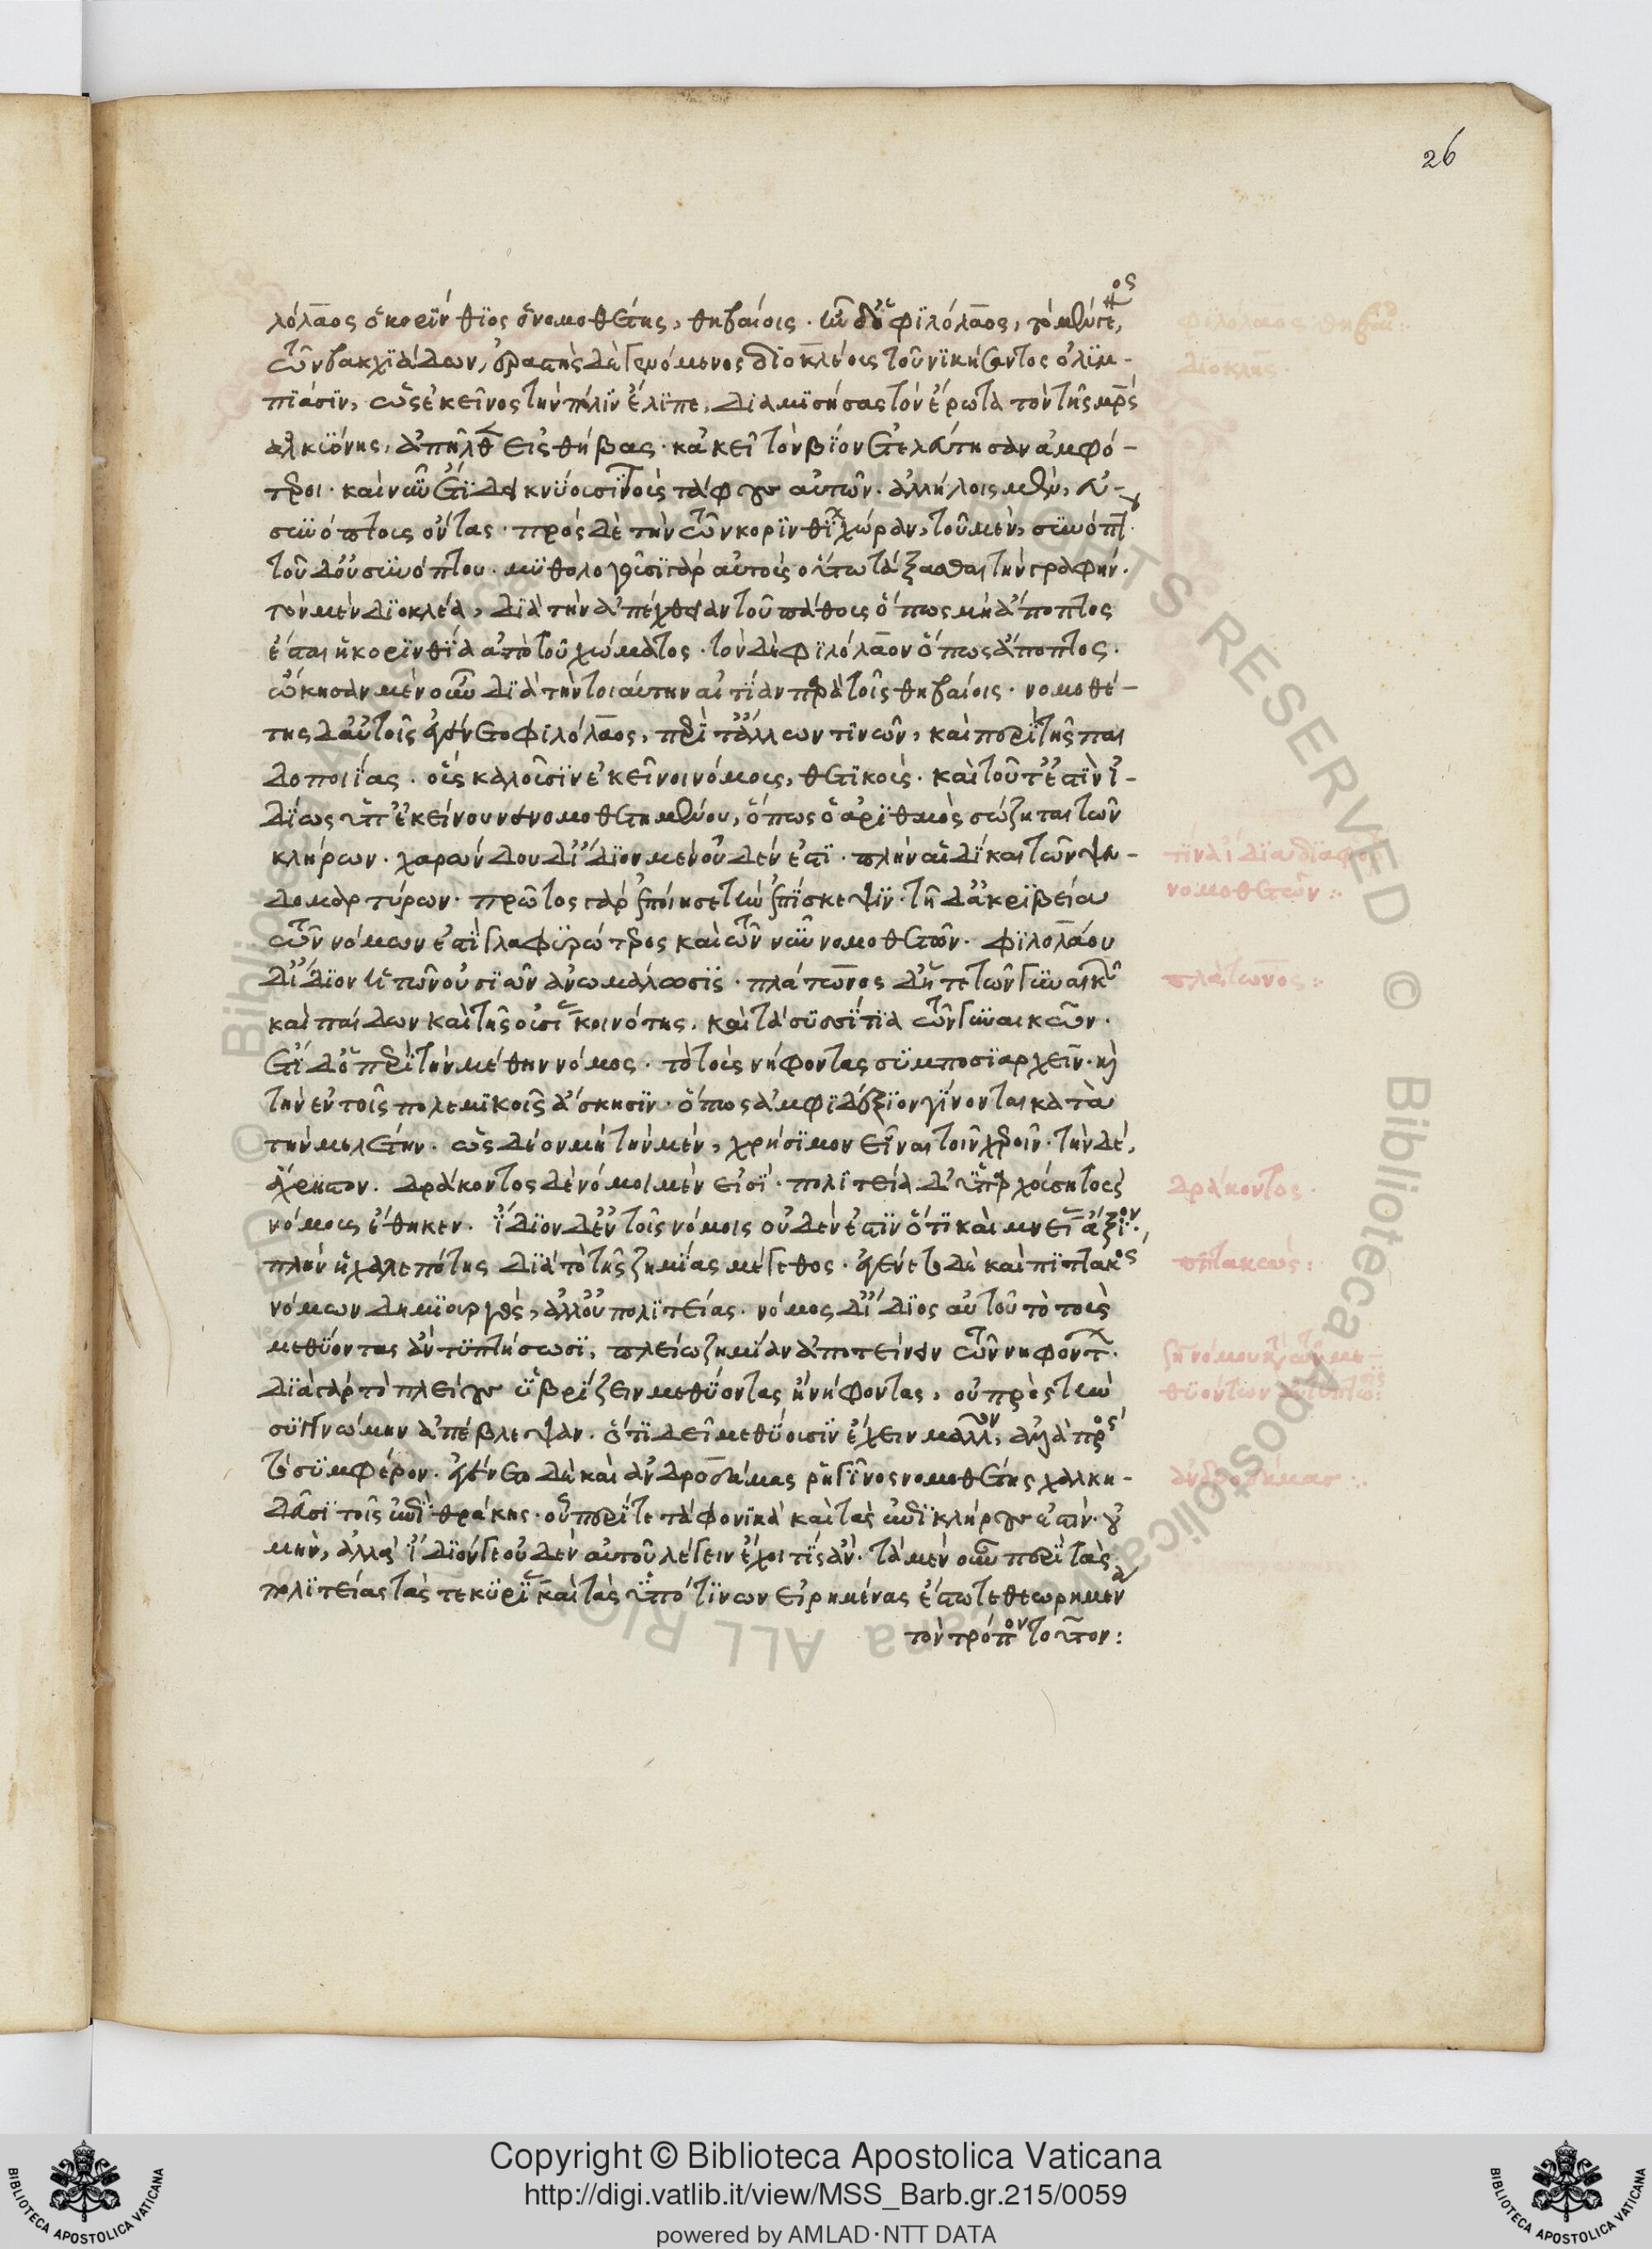 26
λόλαος ὁ κορίνθιος ὁ νομοθέτης, θηβαίοις. ἦν δ' ὁ φιλόλαος, τὸ μὲν γένος,
τῶν βακχιαδων, ἐραστὴς δὲ γενόμενος διοκλέους τοῦ νικήσαντος ὀλυμ-
πιάσιν, ὡς ἐκεῖνος τὴν πόλιν ἔλιπε, διαμισήσας τὸν ἔρωτα τὸν τῆς μρς
αλκυόνης, ἀπῆλθεν εἰς θήβας. κἀκεῖ τὸν βίον ἐτελεύτησαν ἀμφό-
τεροι. καὶ νῦν ἔτι δεικνύουσι τοὺς τάφους αὐτῶν. ἀλλήλοις μὲν, εὐ-
συνόπτους ὄντας. πρὸς δὲ τὴν τῶν κορινθίων χώραν, τοῦ μὲν, συνόπτου.
τοῦ δ' οὐ συνόπτου. μυθολογοῦσι γὰρ αὐτοὺς οὕτω τάξασθαι τὴν ταφήν.
τὸν μὲν διοκλέα, διὰ τὴν ἀπέχθειαν τοῦ πάθους ὅπως μὴ ἄποπτος
ἔσται ἡ κορινθία ἀπὸ τοῦ χώματος. τὸν δὲ φιλόλαον ὅπως ἄποπτος.
ὤκησαν μὲν οὖν διὰ τὴν τοιαύτην αἰτίαν παρὰ τοῖς θηβαίοις. νομοθέ-
της δ' αὐτοῖς ἐγένετο φιλόλαος, περί τ' ἄλλων τινῶν, καὶ περὶ τῆς παι
δοποιίας. οὓς καλοῦσιν ἐκεῖνοι νόμους, θετικούς. καὶ τοῦτ' ἐστὶν ἰ-
δίως ὑπ' ἐκείνου νενομοθετημένον, ὅπως ὁ ἀριθμὸς σώζηται τῶν
κλήρων. χαρώνδου δ' ἴδιον μὲν οὐδέν ἐστι. πλὴν αἱ δίκαι τῶν ψευ-
δομαρτύρων. πρῶτος γὰρ ἐποίησε τὴν ἐπίσκεψιν. τῇ δ' ἀκριβείᾳ
τῶν νόμων ἐστὶ γλαφυρώτερος καὶ τῶν νῦν νομοθετῶν. φιλολάου
δ' ἴδιον ἡ τῶν οὐσιῶν ἀνωμάλωσις. πλάτωνος δ' ἥ τε τῶν γυναικῶν
καὶ παίδων καὶ τῆς οὐσίας κοινότης. καὶ τὰ συσσίτια τῶν γυναικῶν.
ἔτι δ' ὁ περὶ τὴν μέθην νόμος. τὸ τοὺς νήφοντας συμποσιαρχεῖν. καὶ
τὴν ἐν τοῖς πολεμικοῖς ἄσκησιν. ὅπως ἀμφιδέξιοι γίνονται κατὰ
τὴν μελέτην. ὡς δέον μὴ τὴν μὲν, χρήσιμον εἶναι τοῖν χεροῖν. τὴν δέ,
ἄχρηστον. δράκοντος δὲ νόμοι μὲν εἰσί. πολιτείᾳ δ' ὑπαρχούσῃ τοὺς
νόμους ἔθηκεν. ἴδιον δ' ἐν τοῖς νόμοις οὐδέν ἐστιν ὅτι καὶ μνείας ἄξιον.
πλὴν ἡ χαλεπότης διὰ τὸ τῆς ζημίας μέγεθος. ἐγένετο δὲ καὶ πιττακὸς
νόμων δημιουργὸς, ἀλλ' οὐ πολιτείας. νόμος δ' ἴδιος αὐτοῦ τὸ τοὺς
μεθύοντας ἂν τυπτήσωσι, πλείω ζημίαν ἀποτείνειν τῶν νηφόντων.
διὰ γὰρ τὸ πλείους ὑβρίζειν μεθύοντας ἢ νήφοντας, οὐ πρὸς τὴν
συγγνώμην ἀπέβλεψαν. ὅτι δεῖ μεθύουσιν ἔχειν μᾶλλον, ἀλλὰ πρὸς
τὸ σύμφέρον. ἐγένετο δὲ καὶ ἀνδροδάμας ῥηγῖνος νομοθέτης χαλκη-
δεῦσι τοῖς ἐπὶ θράκης. οὗ περί τε τὰ φονικὰ καὶ τὰς ἐπικλήρους ἐστίν. οὐ
μὴν, ἀλλὰ ἴδιόν γε οὐδὲν αὐτοῦ λέγειν ἔχοι τίς ἄν. τὰ μὲν οὖν περὶ τὰς
πολιτείας τάς τε κυρίας καὶ τὰς ὑπό τινων εἰρημένας ἔστω τεθεωρημένα
τὸν τρόπον τοῦτον:
διοκλῆς.
νομοθετῶν:.
πλάτωνος:.
δράκοντος.
πιττακός:
Copyright © Biblioteca Apostolica Vaticana
http://digi.vatlib.it/view/MSS_Barb.gr.215/0059
powered by AMLAD·NTT DATA
BIBLIOTECA APOSTOLICA VATICANA
BIBLIOTECA APOSTOLICA VATICANA